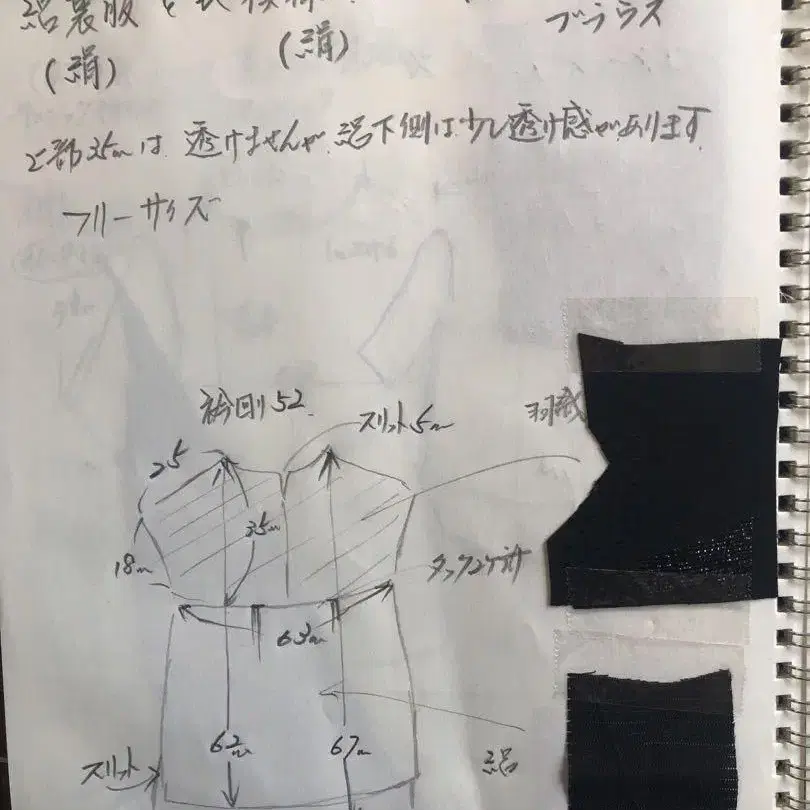 絽裏服と
ブラウス
(絹)
(絹)
上部35cmは、透けませんが、絽下側は少し透け感があります
フリーサイズ
衿回り52
スリット5cm
羽織
25
35cm
18cm
タック2ヶ所
63cm
62cm
67cm
スリット
絽